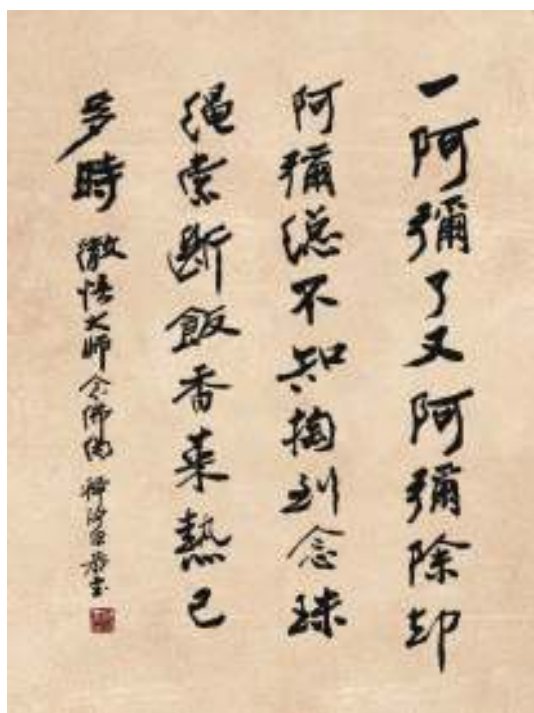 一阿彌了又阿彌除却
阿彌總不知掏到念珠
繩索斷飯香菜熱已
多時 徹悟大師念佛偈